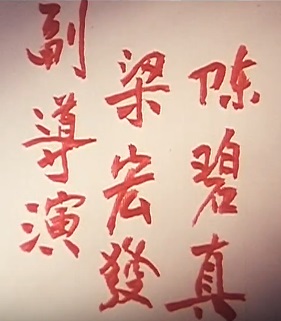 陈碧真
梁宏發
副導演